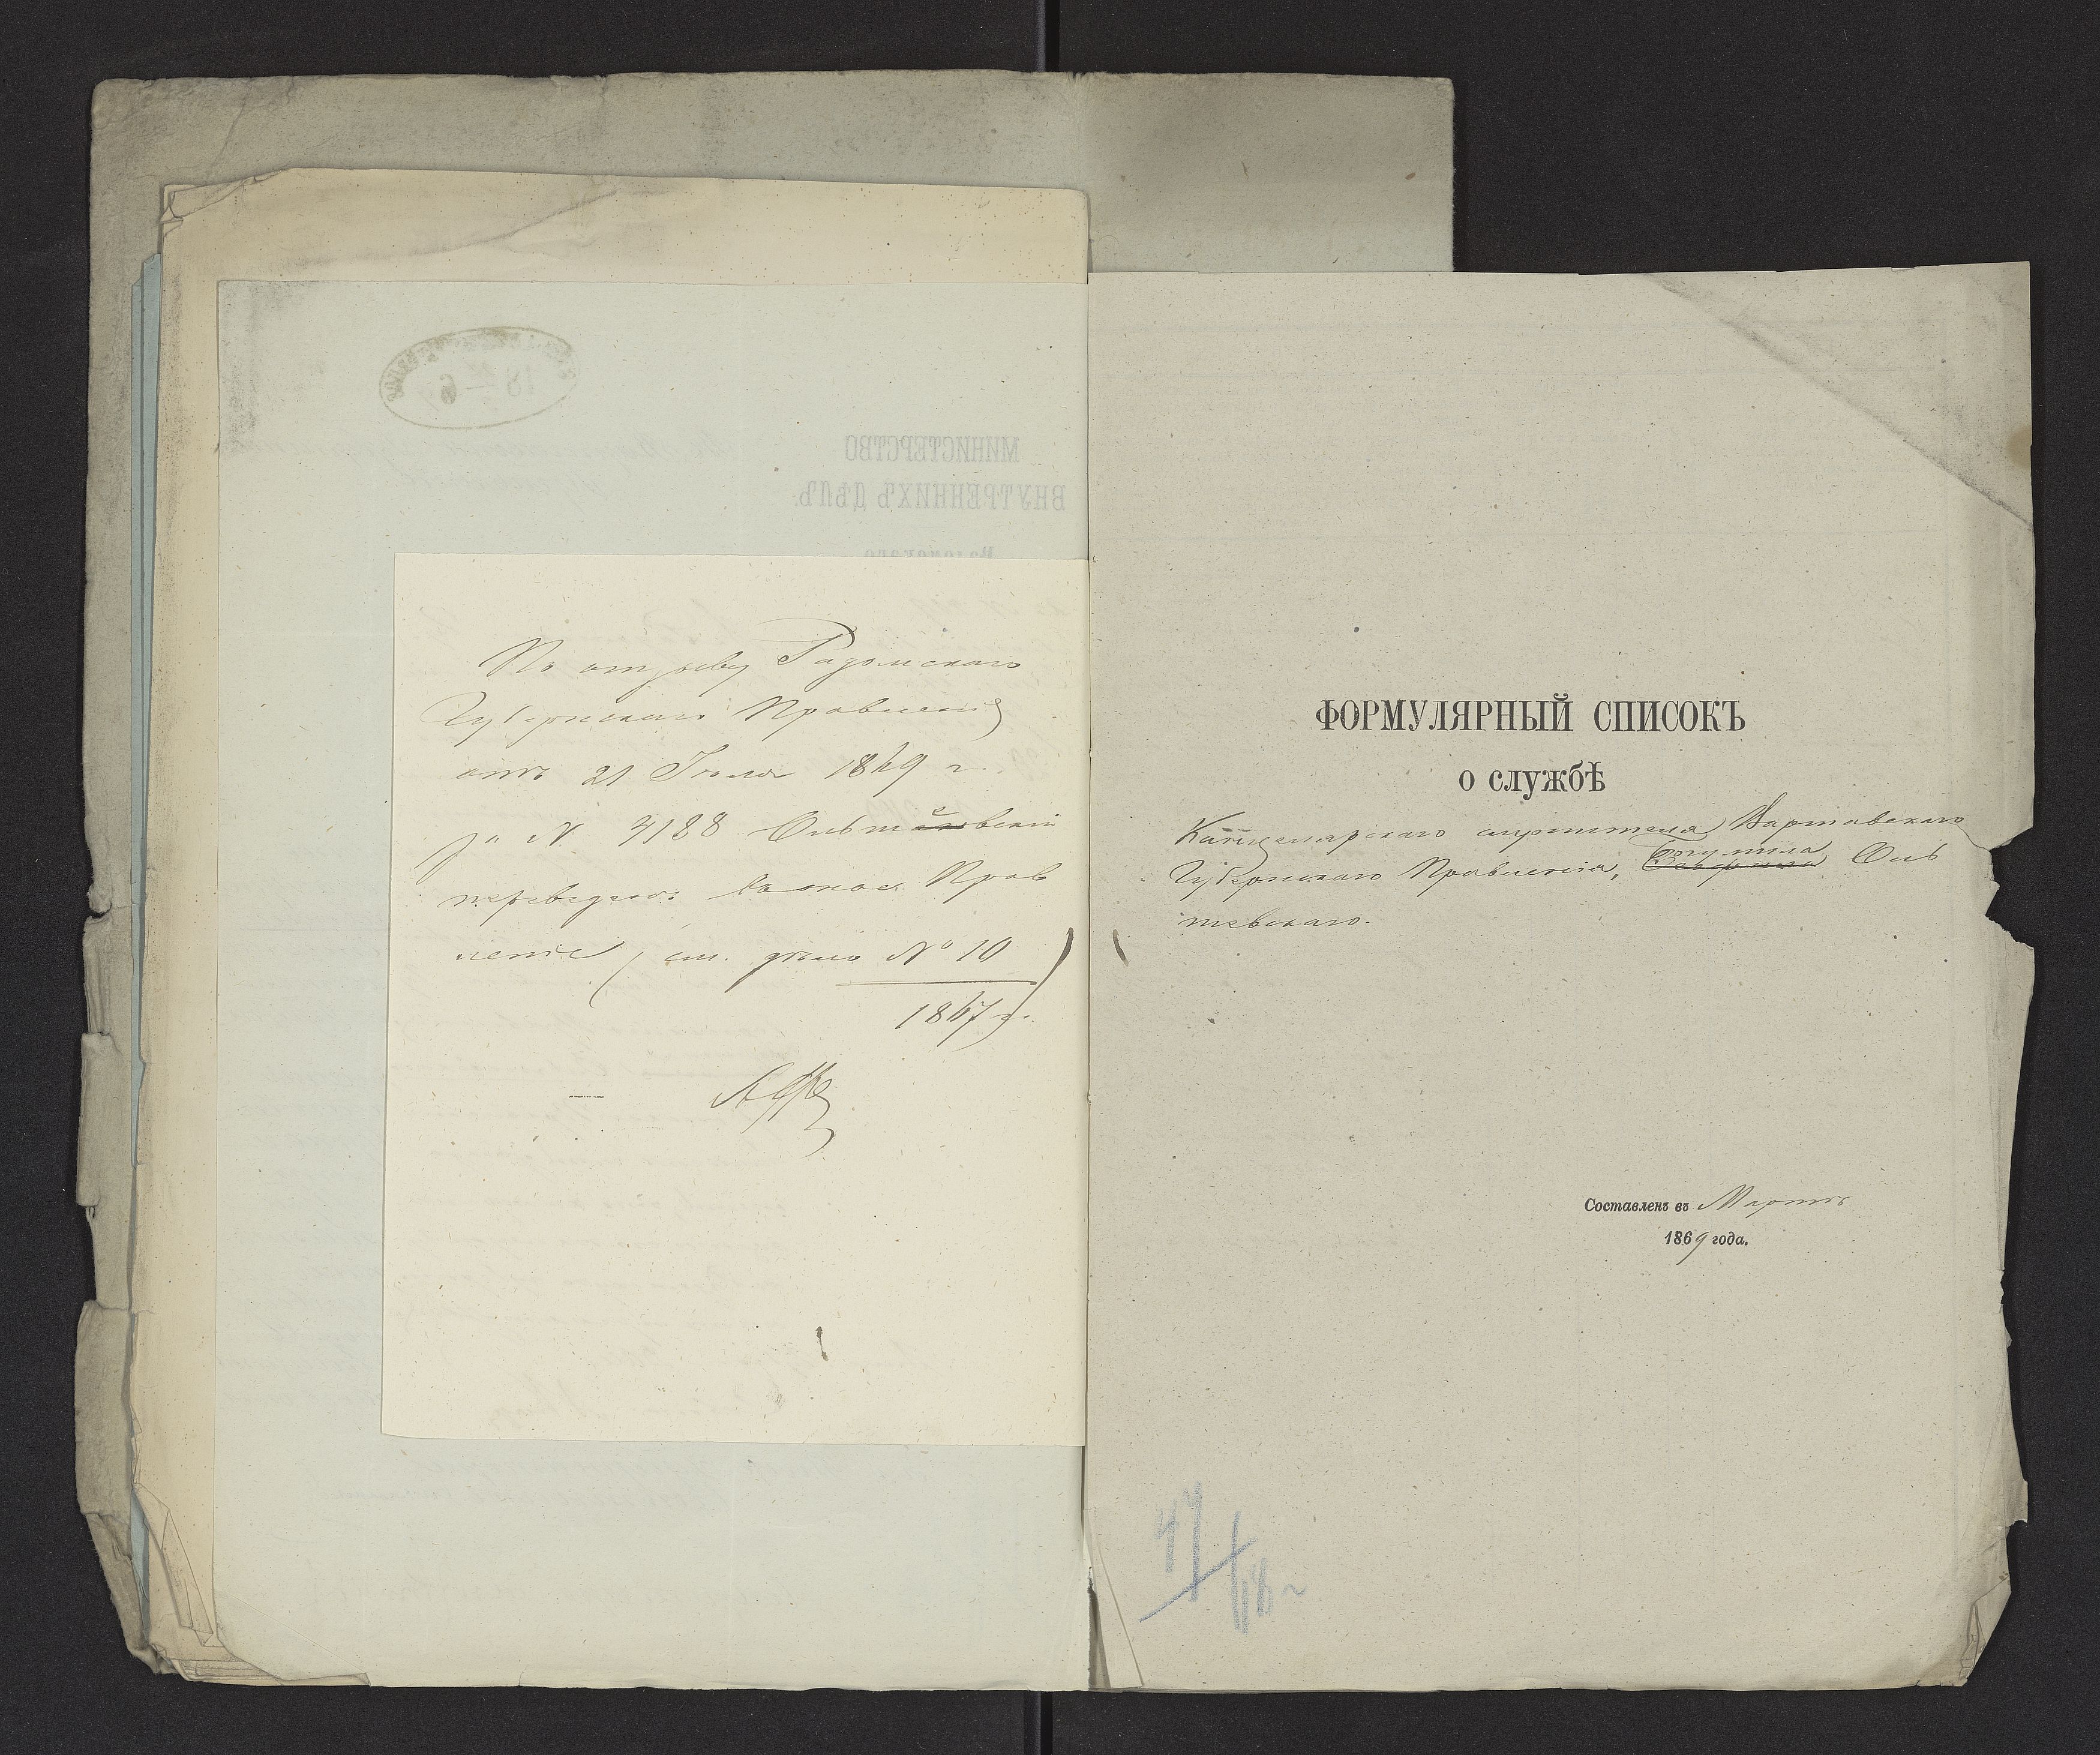 По отзыву Радомскаго
Губернскаго Правленія
отъ 21 Іюля 1869 г.
за № 3188 Ольшевскій
переведенъ въ оное Прав
леніе (см. дѣло № 10
1867 г.)
ФОРМУЛЯРНЫЙ СПИСОКЪ
о службѣ
Канцелярскаго служителя Варшавскаго
Губернскаго Правленія, Богумила Оль
шевскаго.
Составленъ въ Мартѣ
1869 года.
МИНИСТЕРСТВО
ВНУТРЕННИХЪ ДѢЛЪ.